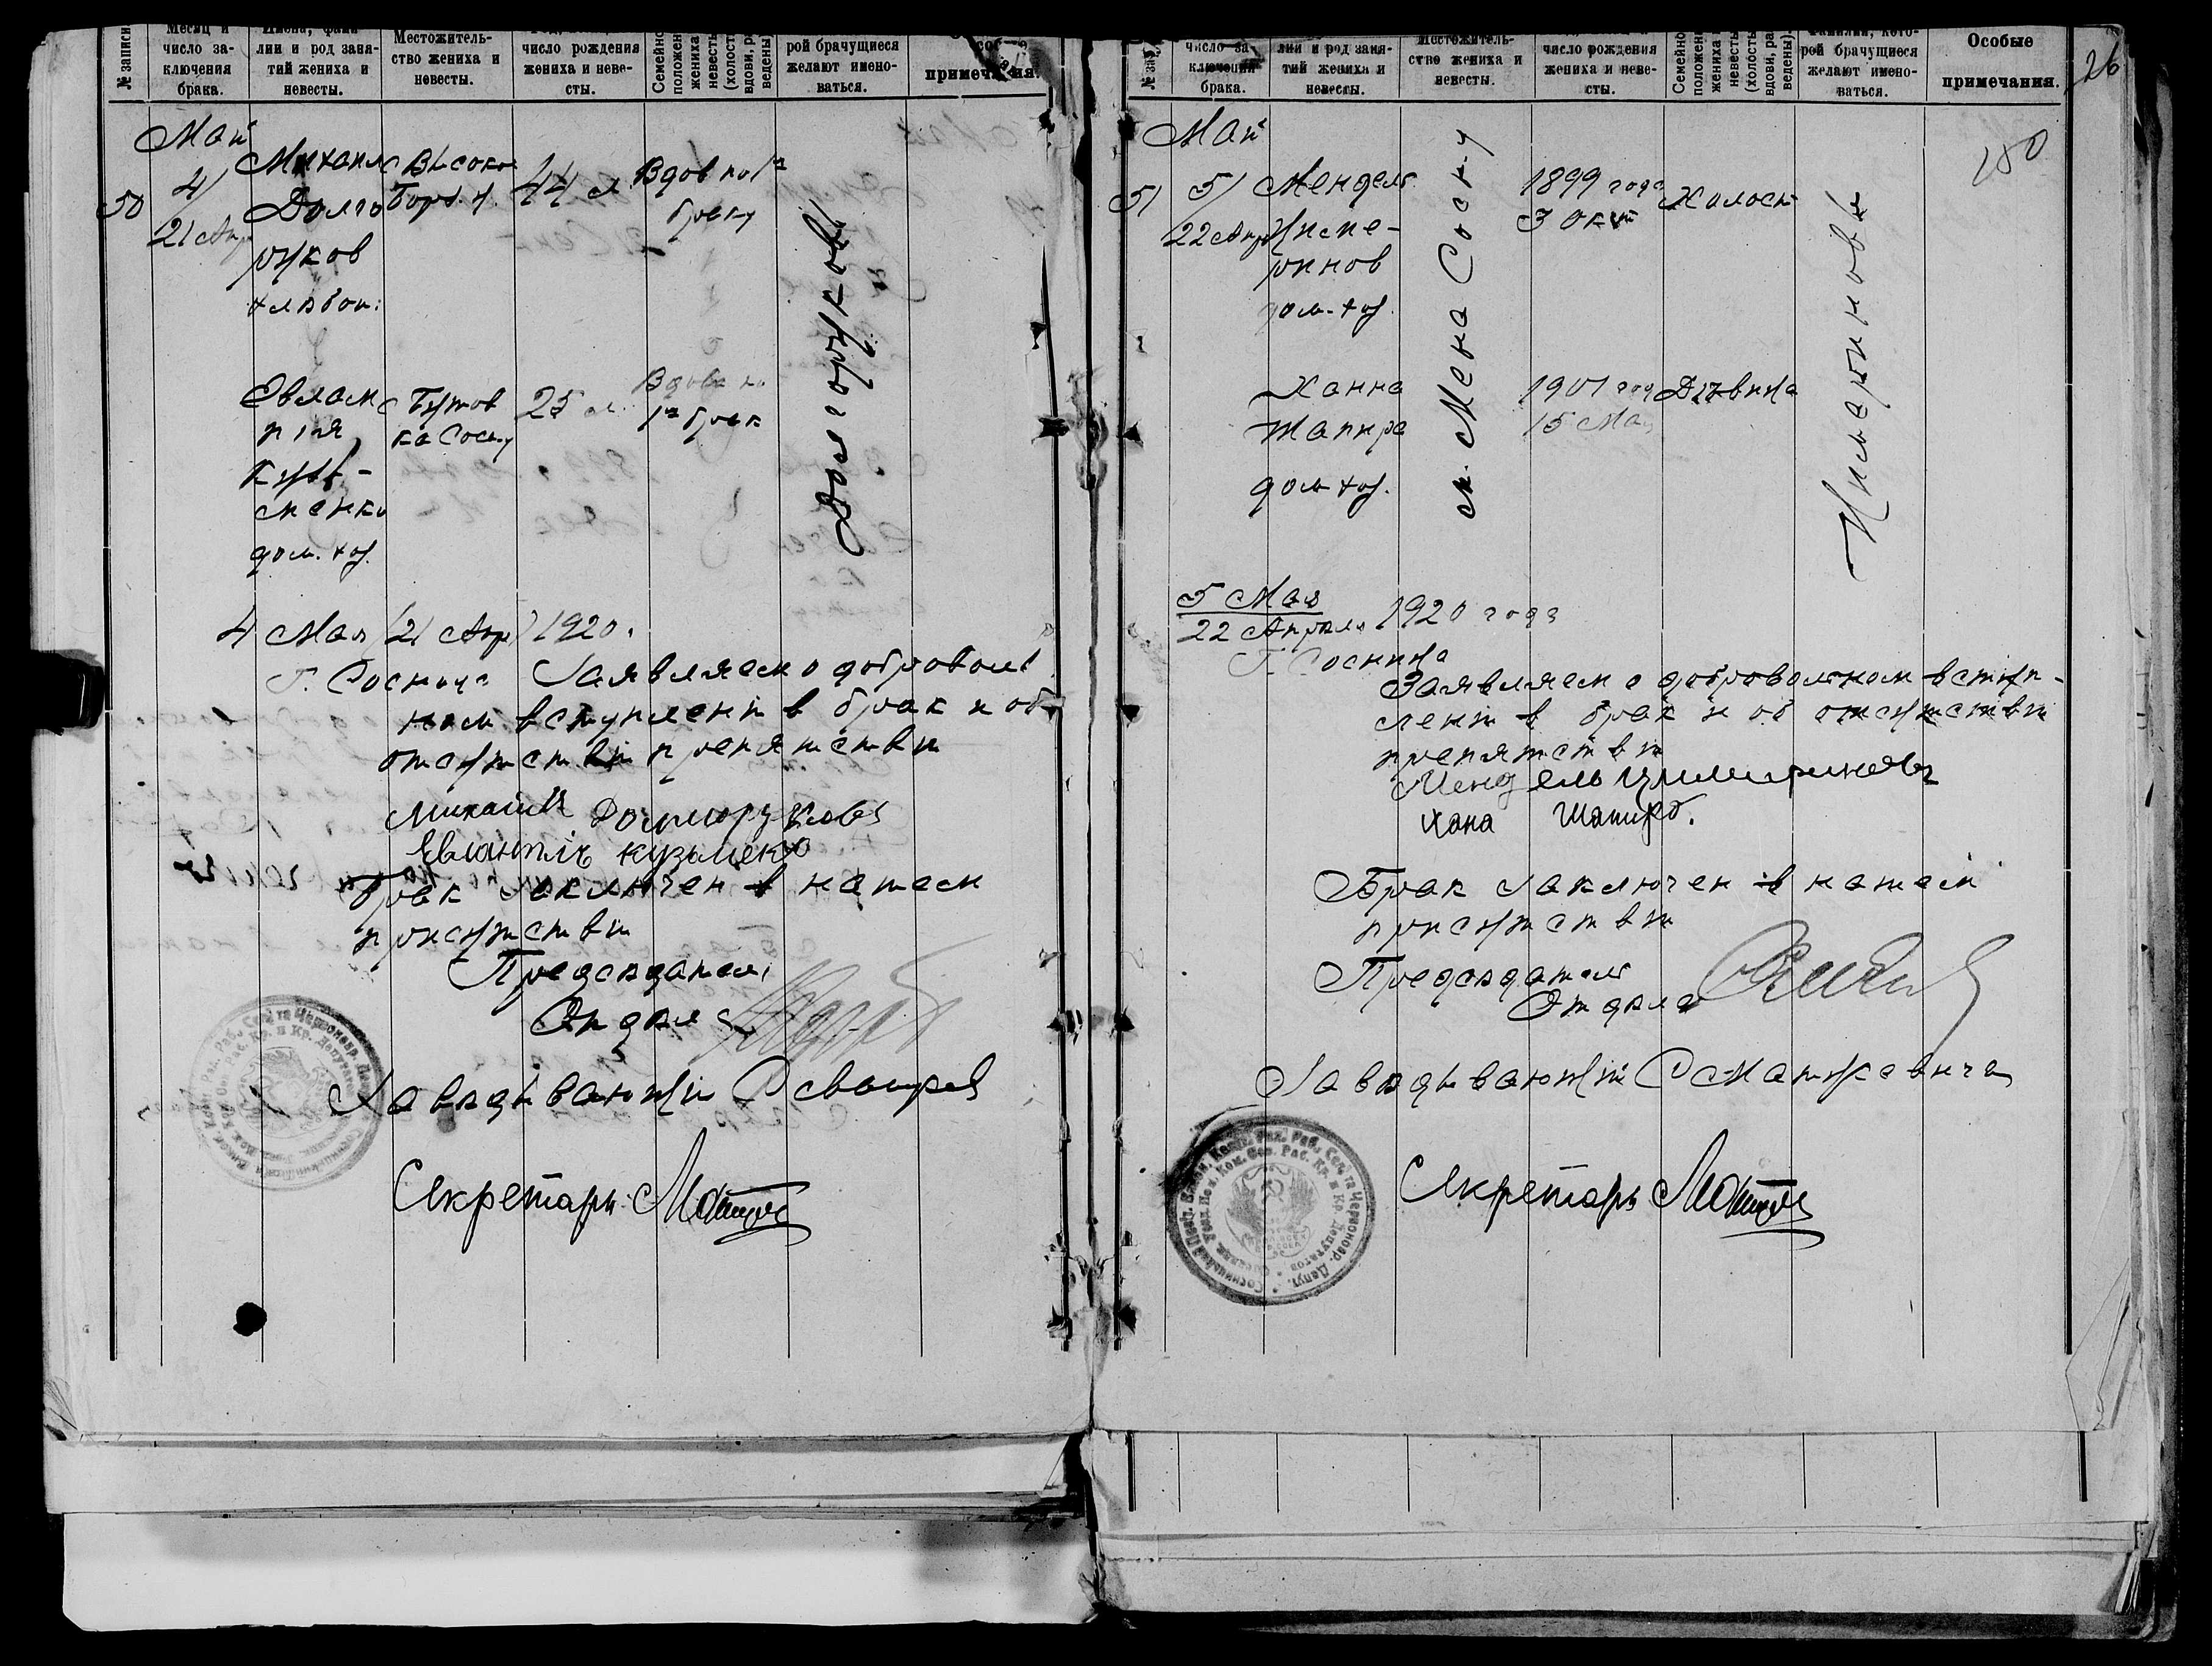 № записи
Месяц и
число за-
ключения
брака.
Имена, фами-
лии и род заня-
тий жениха и
невесты.
Местожитель-
ство жениха и
невесты.
число рождения
жениха и неве-
сты.
Семейно
положен
жениха
невесты
(холост
вдови, ра
ведены)
рой брачущиеся
желают имено-
ваться.
примечания.
50
Май
4/
21 Апр
Михаил
Долго
руков
хлебоп.
с Высокое
Борз. у.
44 л
Вдов по 1ª
браку
Долгоруковы
Евлам
пия
Кузь-
менко
дом. хоз.
с Бутов
ка Сосн.у
25 л.
Вдова по
1ª брак
4 Мая (21 Апр) 1920.
Г. Сосница Заявляем о доброволь
ном вступлении в брак и об
отсутствии препятствий
Михаил Долгоруковъ
Евлампія Кузьменко
Брак заключен в нашем
присутствии
Председатель
Отдела
Заведывающий
Секретарь
число за-
ключения
брака.
лии и род заня-
тий жениха и
невесты.
Местожитель-
ство жениха и
невесты.
число рождения
жениха и неве-
сты.
Семейно
положен
жениха
невесты
(холосты
вдови, ра
ведены).
фамилии, кото-
рой брачущиеся
желают имено-
ваться.
Особые
примечания.
26
150
51
Май
5/
22 Апр
Мендель
Циме-
ринов
дом. хоз.
м. Мена Сосн.у
1899 года
3 Окт
Холост
Цимериновы
Ханна
Шапиро
дом хоз.
1901 год
15 Мая
Девица
5 Мая
22 Апреля 1920 года
Г. Сосница
Заявляем о добровольном вступ-
лении в брак и об отсутствии
препятствий
Мендель Цимериновъ
Хана Шапиро.
Брак заключен в нашем
присутствии
Председатель
Отдела
Заведывающий
Секретарь